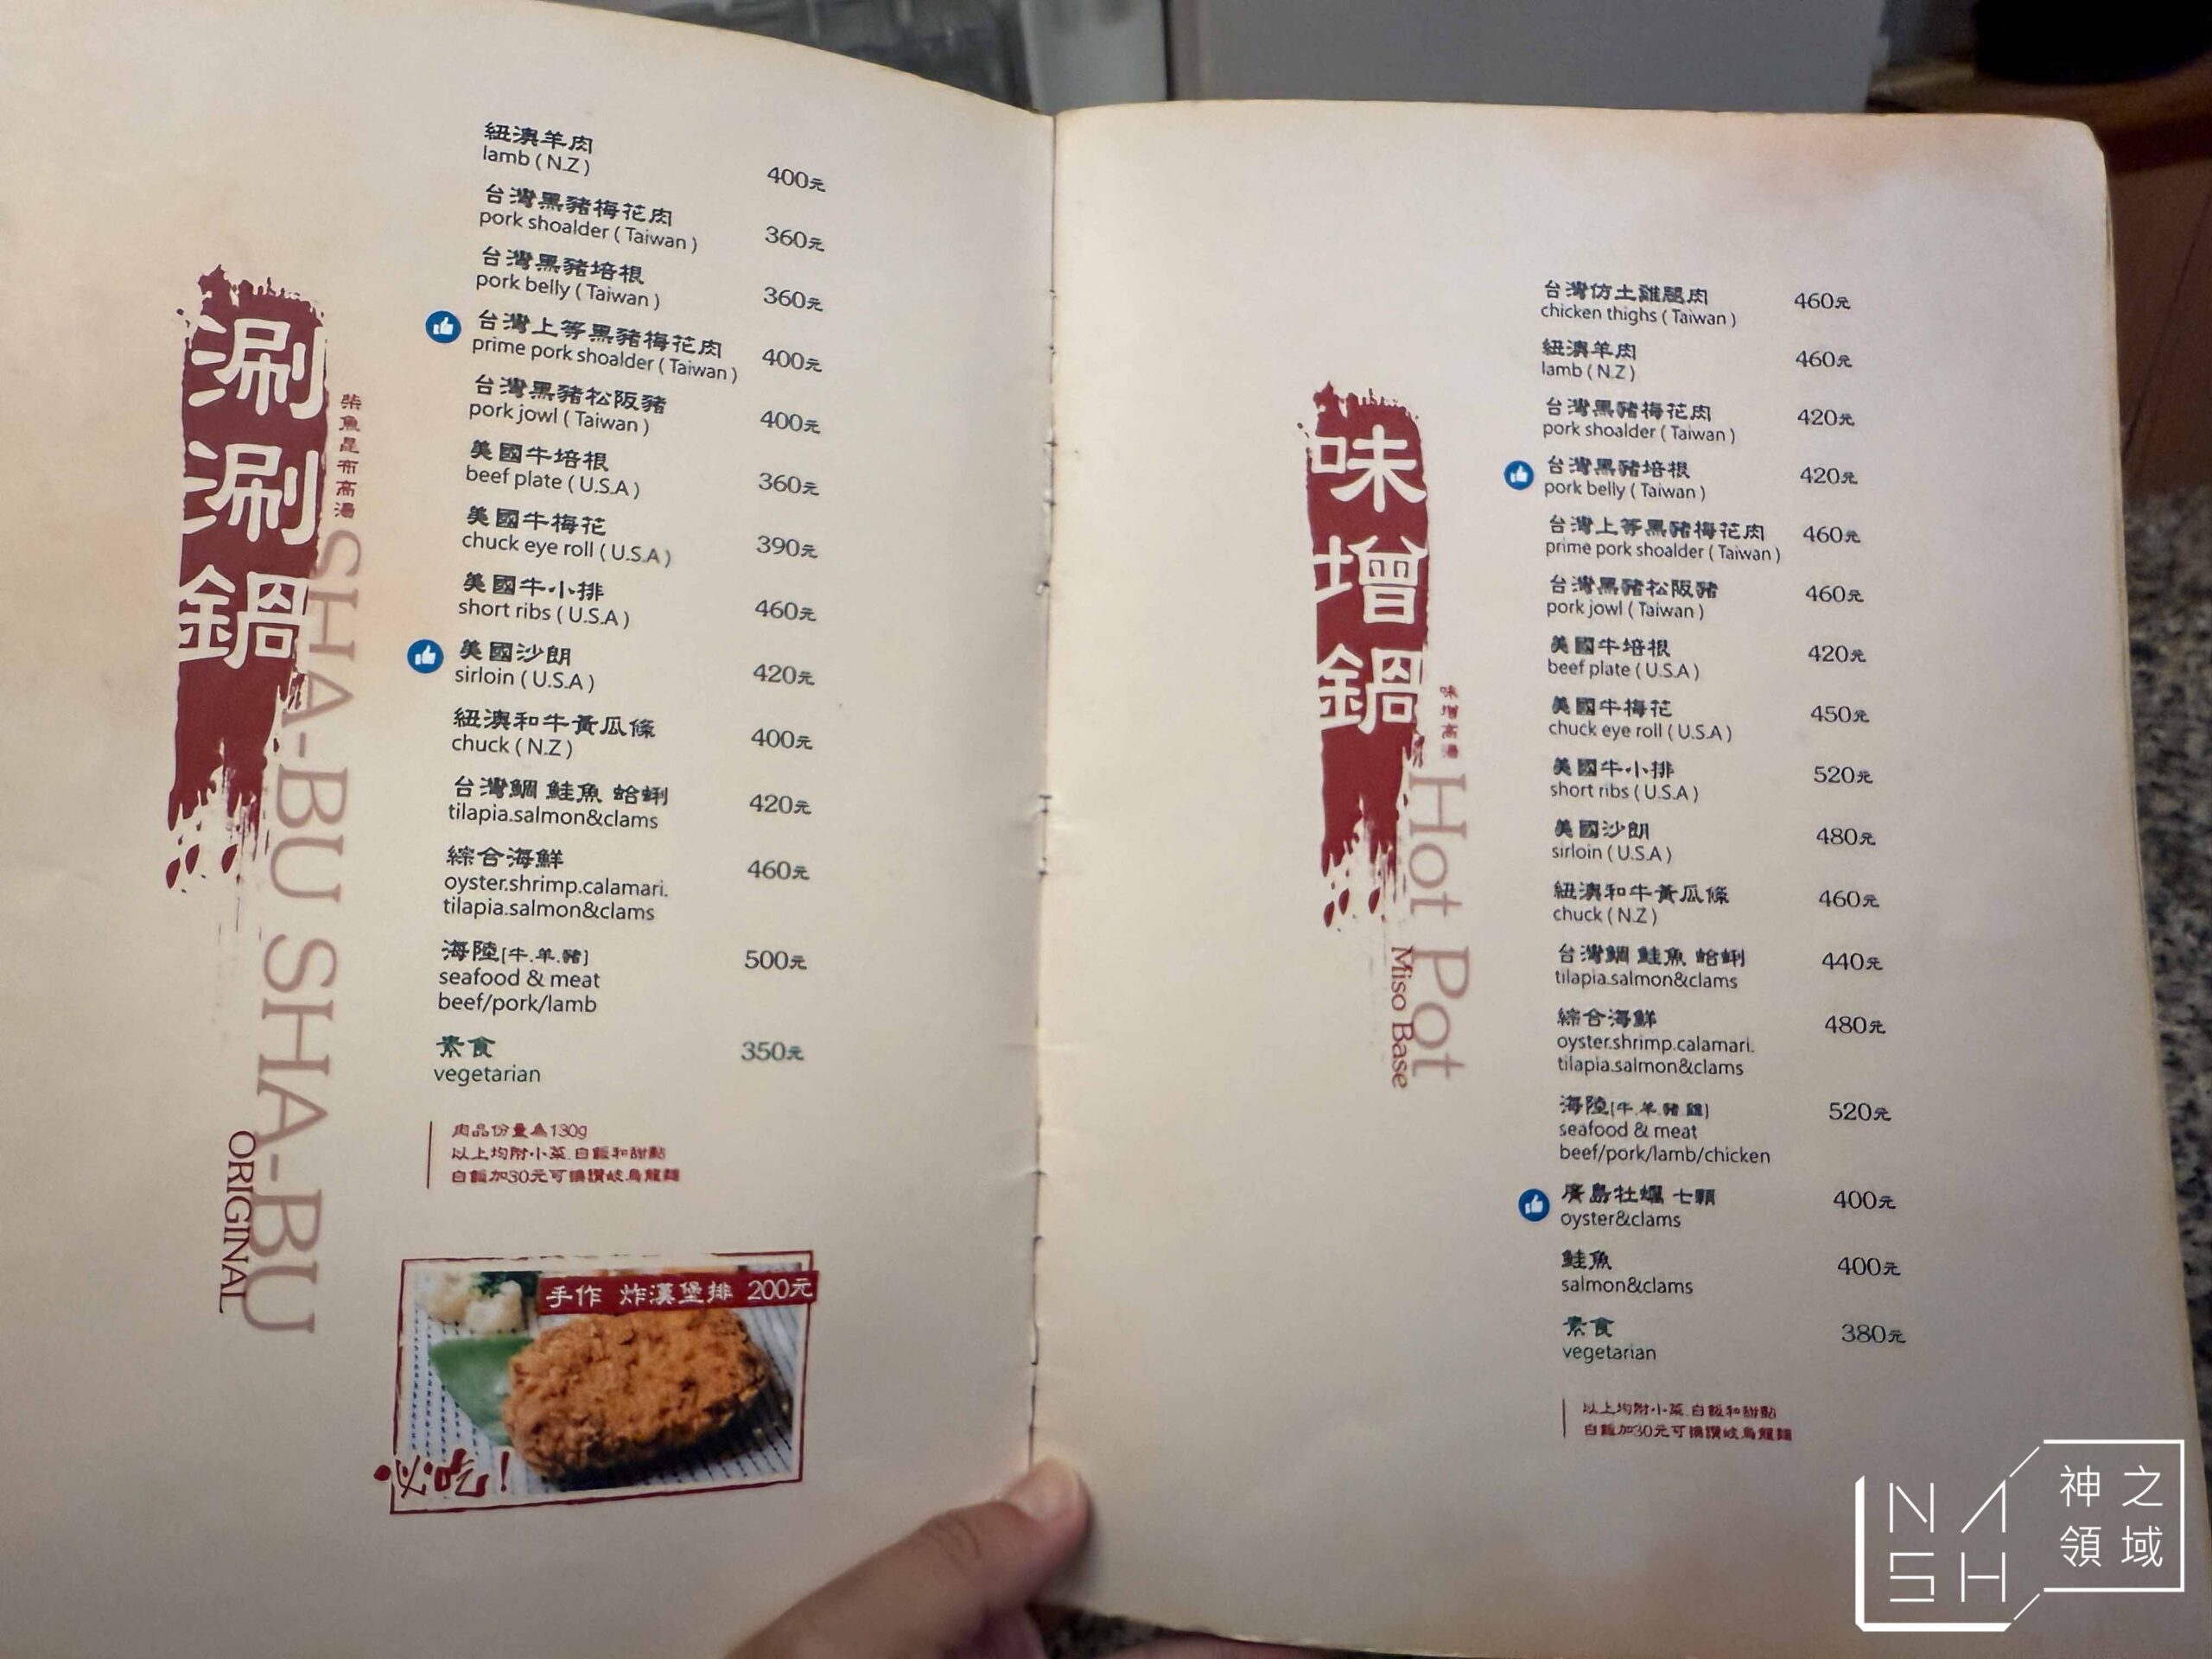 涮涮鍋
柴魚昆布高湯
SHA-BU SHA-BU
ORIGINAL
紐澳羊肉
lamb ( N.Z ) 400元
台灣黑豬梅花肉
pork shoalder ( Taiwan ) 360元
台灣黑豬培根
pork belly ( Taiwan ) 360元
台灣上等黑豬梅花肉
prime pork shoalder ( Taiwan ) 400元
台灣黑豬松阪豬
pork jowl ( Taiwan ) 400元
美國牛培根
beef plate ( U.S.A ) 360元
美國牛梅花
chuck eye roll ( U.S.A ) 390元
美國牛小排
short ribs ( U.S.A ) 460元
美國沙朗
sirloin ( U.S.A ) 420元
紐澳和牛黃瓜條
chuck ( N.Z ) 400元
台灣鯛 鮭魚 蛤蜊 420元
tilapia.salmon&clams
綜合海鮮 460元
oyster.shrimp.calamari.
tilapia.salmon&clams
海陸[牛.羊.豬] 500元
seafood & meat
beef/pork/lamb
素食 350元
vegetarian
肉品份量為130g
以上均附小菜.白飯和甜點
白飯加30元可換讚岐烏龍麵
手作 炸漢堡排 200元
必吃!
味增鍋
味增高湯
Hot Pot
Miso Base
台灣仿土雞腿肉 460元
chicken thighs ( Taiwan )
紐澳羊肉 460元
lamb ( N.Z )
台灣黑豬梅花肉 420元
pork shoalder ( Taiwan )
台灣黑豬培根 420元
pork belly ( Taiwan )
台灣上等黑豬梅花肉 460元
prime pork shoalder ( Taiwan )
台灣黑豬松阪豬 460元
pork jowl ( Taiwan )
美國牛培根 420元
beef plate ( U.S.A )
美國牛梅花 450元
chuck eye roll ( U.S.A )
美國牛小排 520元
short ribs ( U.S.A )
美國沙朗 480元
sirloin ( U.S.A )
紐澳和牛黃瓜條 460元
chuck ( N.Z )
台灣鯛 鮭魚 蛤蜊 440元
tilapia.salmon&clams
綜合海鮮 480元
oyster.shrimp.calamari.
tilapia.salmon&clams
海陸[牛.羊.豬.雞] 520元
seafood & meat
beef/pork/lamb/chicken
廣島牡蠣 七顆 400元
oyster&clams
鮭魚 400元
salmon&clams
素食 380元
vegetarian
以上均附小菜.白飯和甜點
白飯加30元可換讚岐烏龍麵
NASH
神之領域